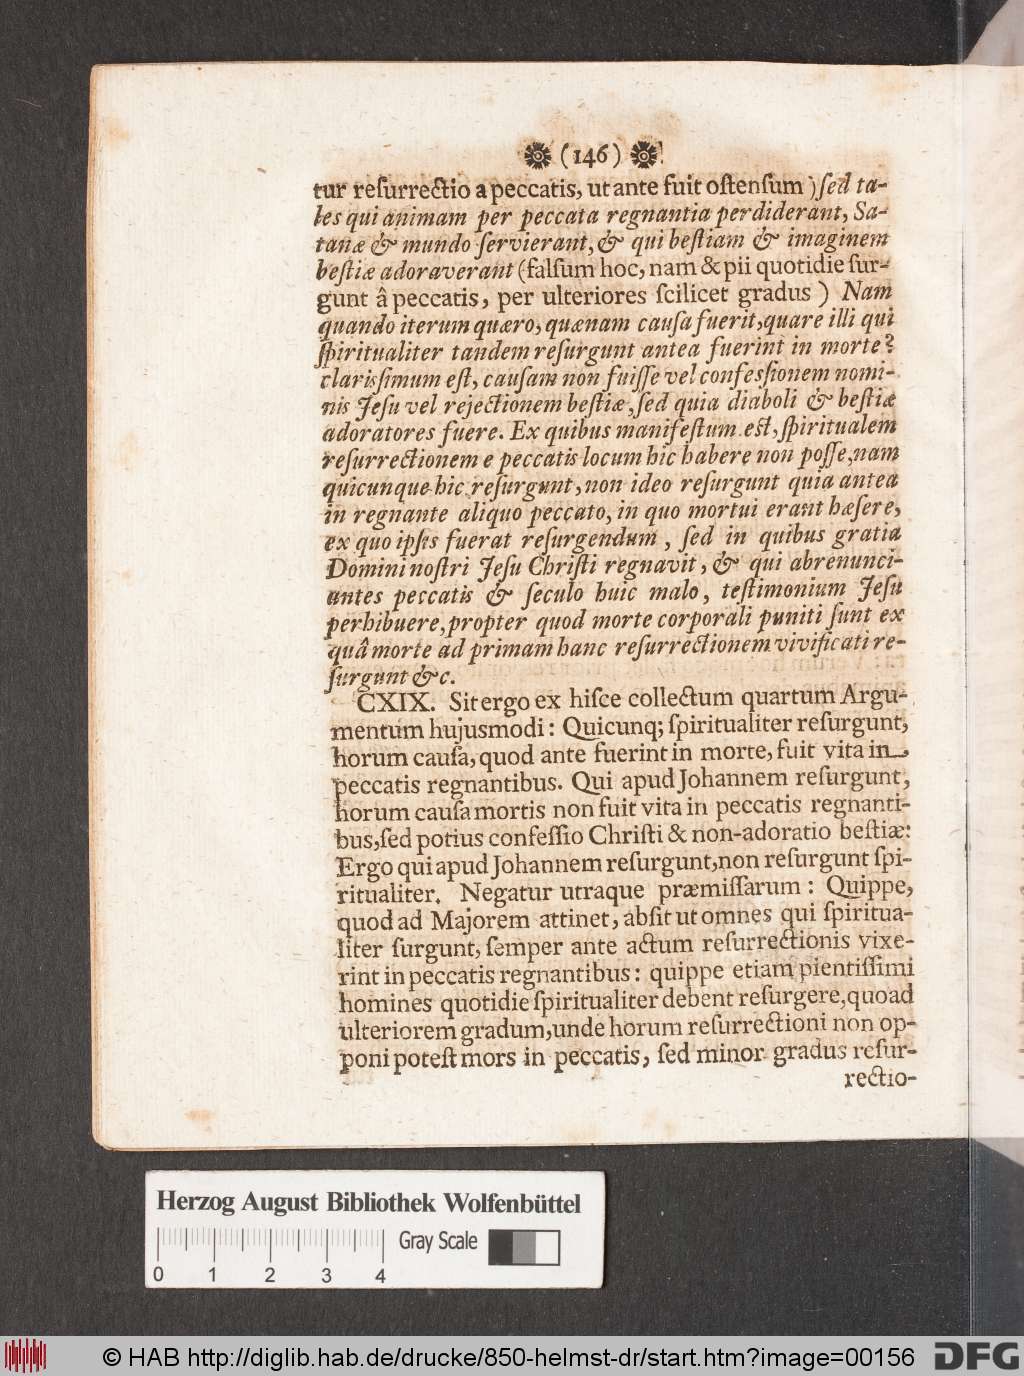 (146)
tur reſurrectio a peccatis, ut ante fuit oſtenſum) ſed ta-
les qui animam per peccata regnantia perdiderant, Sa-
tanæ & mundo ſervierant, & qui beſtiam & imaginem
beſtiæ adoraverant (falſum hoc, nam & pii quotidie ſur-
gunt â peccatis, per ulteriores ſcilicet gradus) Nam
quando iterum quæro, quænam cauſa fuerit, quare illi qui
ſpiritualiter tandem reſurgunt antea fuerint in morte?
clarisſimum eſt, cauſam non fuiſſe vel confesſionem nomi-
nis Jeſu vel rejectionem beſtiæ, ſed quia diaboli & beſtiæ
adoratores fuere. Ex quibus manifeſtum eſt, ſpiritualem
reſurrectionem e peccatis locum hic habere non poſſe, nam
quicunque hic reſurgunt, non ideo reſurgunt quia antea
in regnante aliquo peccato, in quo mortui erant hæſere,
ex quo ipſis fuerat reſurgendum, ſed in quibus gratia
Domini noſtri Jeſu Chriſti regnavit, & qui abrenunci-
antes peccatis & ſeculo huic malo, teſtimonium Jeſu
perhibuere, propter quod morte corporali puniti ſunt ex
quâ morte ad primam hanc reſurrectionem vivificati re-
ſurgunt &c.
CXIX. Sit ergo ex hiſce collectum quartum Argu-
mentum hujusmodi: Quicunq; ſpiritualiter reſurgunt,
horum cauſa, quod ante fuerint in morte, fuit vita in
peccatis regnantibus. Qui apud Johannem reſurgunt,
horum cauſa mortis non fuit vita in peccatis regnanti-
bus, ſed potius confeſſio Chriſti & non-adoratio beſtiæ:
Ergo qui apud Johannem reſurgunt, non reſurgunt ſpi-
ritualiter. Negatur utraque præmiſſarum: Quippe,
quod ad Majorem attinet, abſit ut omnes qui ſpiritua-
liter ſurgunt, ſemper ante actum reſurrectionis vixe-
rint in peccatis regnantibus: quippe etiam pientiſſimi
homines quotidie ſpiritualiter debent reſurgere, quoad
ulteriorem gradum, unde horum reſurrectioni non op-
poni poteſt mors in peccatis, ſed minor gradus reſur-
rectio-
Herzog August Bibliothek Wolfenbüttel
Gray Scale
0 1 2 3 4
© HAB http://diglib.hab.de/drucke/850-helmst-dr/start.htm?image=00156
DFG